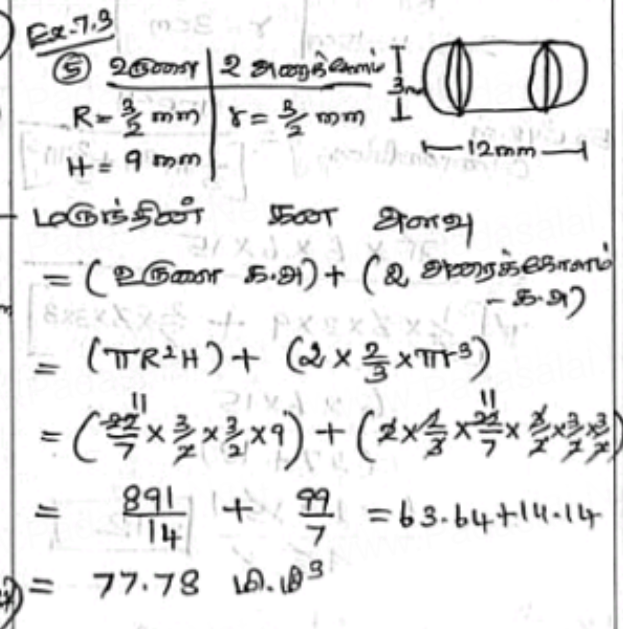 Ex-7.3
⑤ உருளை | 2 அரைக்கோளம்
R = 3/2 mm | r = 3/2 mm
H = 9 mm
3m
12mm
மருந்தின் கன அளவு
= (உருளை க.அ) + (2 அரைக்கோளம் - க.அ)
= (πR²H) + (2 × 2/3 × πr³)
= (22/7 × 3/2 × 3/2 × 9) + (2 × 2/3 × 22/7 × 3/2 × 3/2 × 3/2)
= 891/14 + 99/7 = 63.64 + 14.14
= 77.78 மி.மீ³